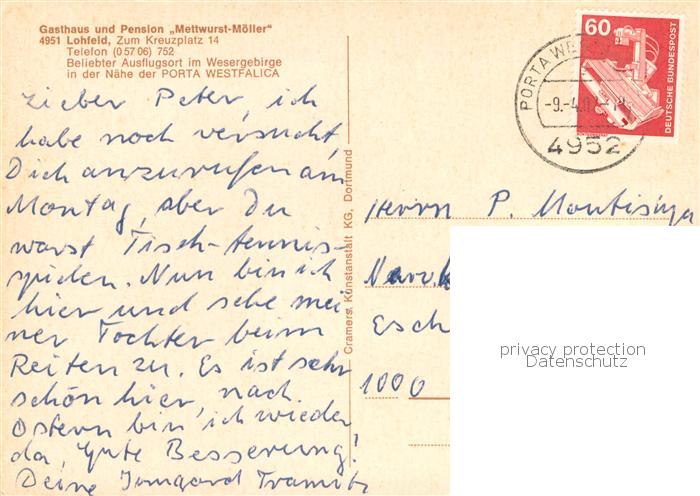 Gasthaus und Pension „Mettwurst-Möller"
4951 Lohfeld, Zum Kreuzplatz 14
Telefon (0 57 06) 752
Beliebter Ausflugsort im Wesergebirge
in der Nähe der PORTA WESTFALICA
Lieber Peter, ich
habe noch versucht,
Dich anzurufen am
Montag, aber Du
warst Tisch-tennis-
spielen. Nun bin ich
hier und sehe mei
ner Tochter beim
Reiten zu. Es ist sehr
schön hier, nach
Ostern bin ich wieder
da, Gute Besserung!
Deine Irmgard
Cramers Kunstanstalt KG, Dortmund
60
DEUTSCHE BUNDESPOST
PORTA
4952
Herrn P.
Esch
1000
privacy protection
Datenschutz